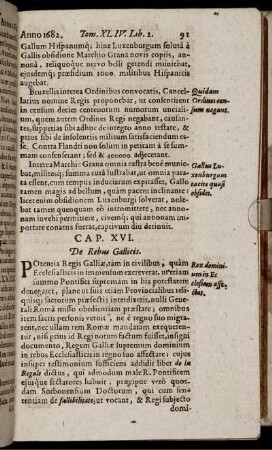 Anno 1682. Tom. XLIV. Lib. 2. 91
Gallum Hispanumq; hinc Luxenburgum soluta à
Gallis obsidione Marchio Grana novis copiis, an-
nonâ, reliquoque nervo belli gerendi munitbat,
ejusdemq; præsidium 1000. militibus Hispanicis
augebat.
Bruxellis interea Ordinibus convocatis, Cancel-
larius nomine Regis proponebat, ut consentirent
in censum decies centenorum nummorum uncialì-
um, quem autem Ordines Regi negabant, causan-
tes, suppetias sibi adhuc de integro anno restare, &
prius sibi de insolentiis militum satisfaciendum es-
se. Contra Flandri non solùm in petitam à se sum-
mam consenserant, sed & 40000. adjecerant.
Quidam
Ordines cen-
sum negant.
Interea Marchi: Grana omnia castra bene munie-
bat, militumq; summa cura lustrabat, ut omnia para-
ta essent, cum tempus induciarum expirasset, Gallo
tamen magis ad bellum, quàm pacem, inclinante, qui
licet aliquem obsidionem Luxenburgi solverat, no-
lebat tamen quenquam eò intromittere, nec anno-
nam invehi permittere, civemq; qui annonam im-
portare conatus fuerat, captivum diu detinuit.
Gallus Lu-
xenburgum
tacite quasi
obsidet.
CAP. XVI.
De Rebus Gallicis.
POtentia Regis Galliæ, tam in civilibus, quàm
Ecclesiasticis in immensum excreverat, ut etiam
summo Pontifici supremam in his potestatem
denegaret, plane ut suis etiam Provincialibus tesse-
ritisq; sacrorum præfectis interdixerit, nulli Gene-
rali Româ misso obedientiam præstate, omnibus
item sacris personis veruit, ne è regno suo migra-
rent, nec ullam rem Romæ mandatam exequeren-
tur, nisi prius id Regi notum factum fuisset, imò as-
serere moliebatur, Regem Galliæ supremum dominium
in rebus Ecclesiasticis in regno suo affectare; cujus
insuper testimonium sufficiens addidit liber de la
Regale dictus, qui admodum malè R. Pontificem
ejusque sectatores habuit, præcipuè verò quos-
dam Sorbonensium Doctorum, qui cum sen-
tentiam de fallibilitate, ut vocant, & Regi subjecto
Rex domini-
um in Ec
clesiam affe-
ctat.
domi-